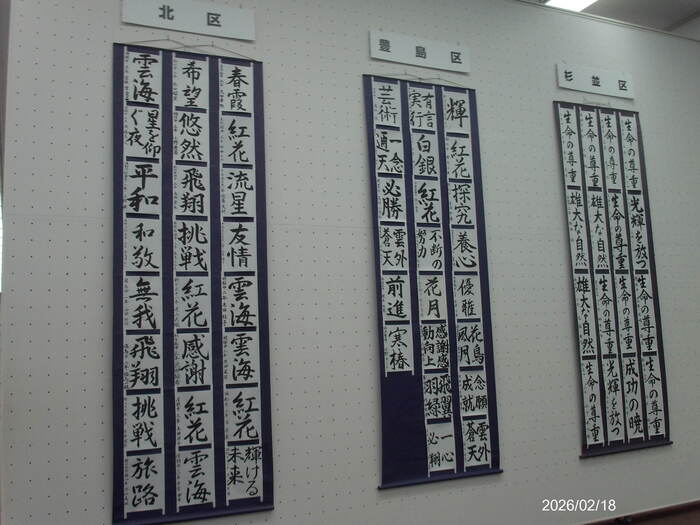 北区
春霞
紅花
流星
友情
雲海
雲海
紅花
輝ける未来
希望
悠然
飛翔
挑戦
紅花
感謝
紅花
雲海
雲海
星を仰ぐ夜
平和
和敬
無我
飛翔
挑戦
旅路
豊島区
輝
紅花
探究
養心
優雅
花鳥風月
念願成就
雲外蒼天
有言実行
白銀
紅花
不断の努力
花月
感謝感動向上
一心
芸術
一念通天
必勝
雲外蒼天
前進
寒椿
杉並区
生命の尊重
光輝を放つ
生命の尊重
生命の尊重
生命の尊重
生命の尊重
生命の尊重
成功の暁
生命の尊重
雄大な自然
生命の尊重
光輝を放つ
生命の尊重
雄大な自然
雄大な自然
生命の尊重
2026/02/18